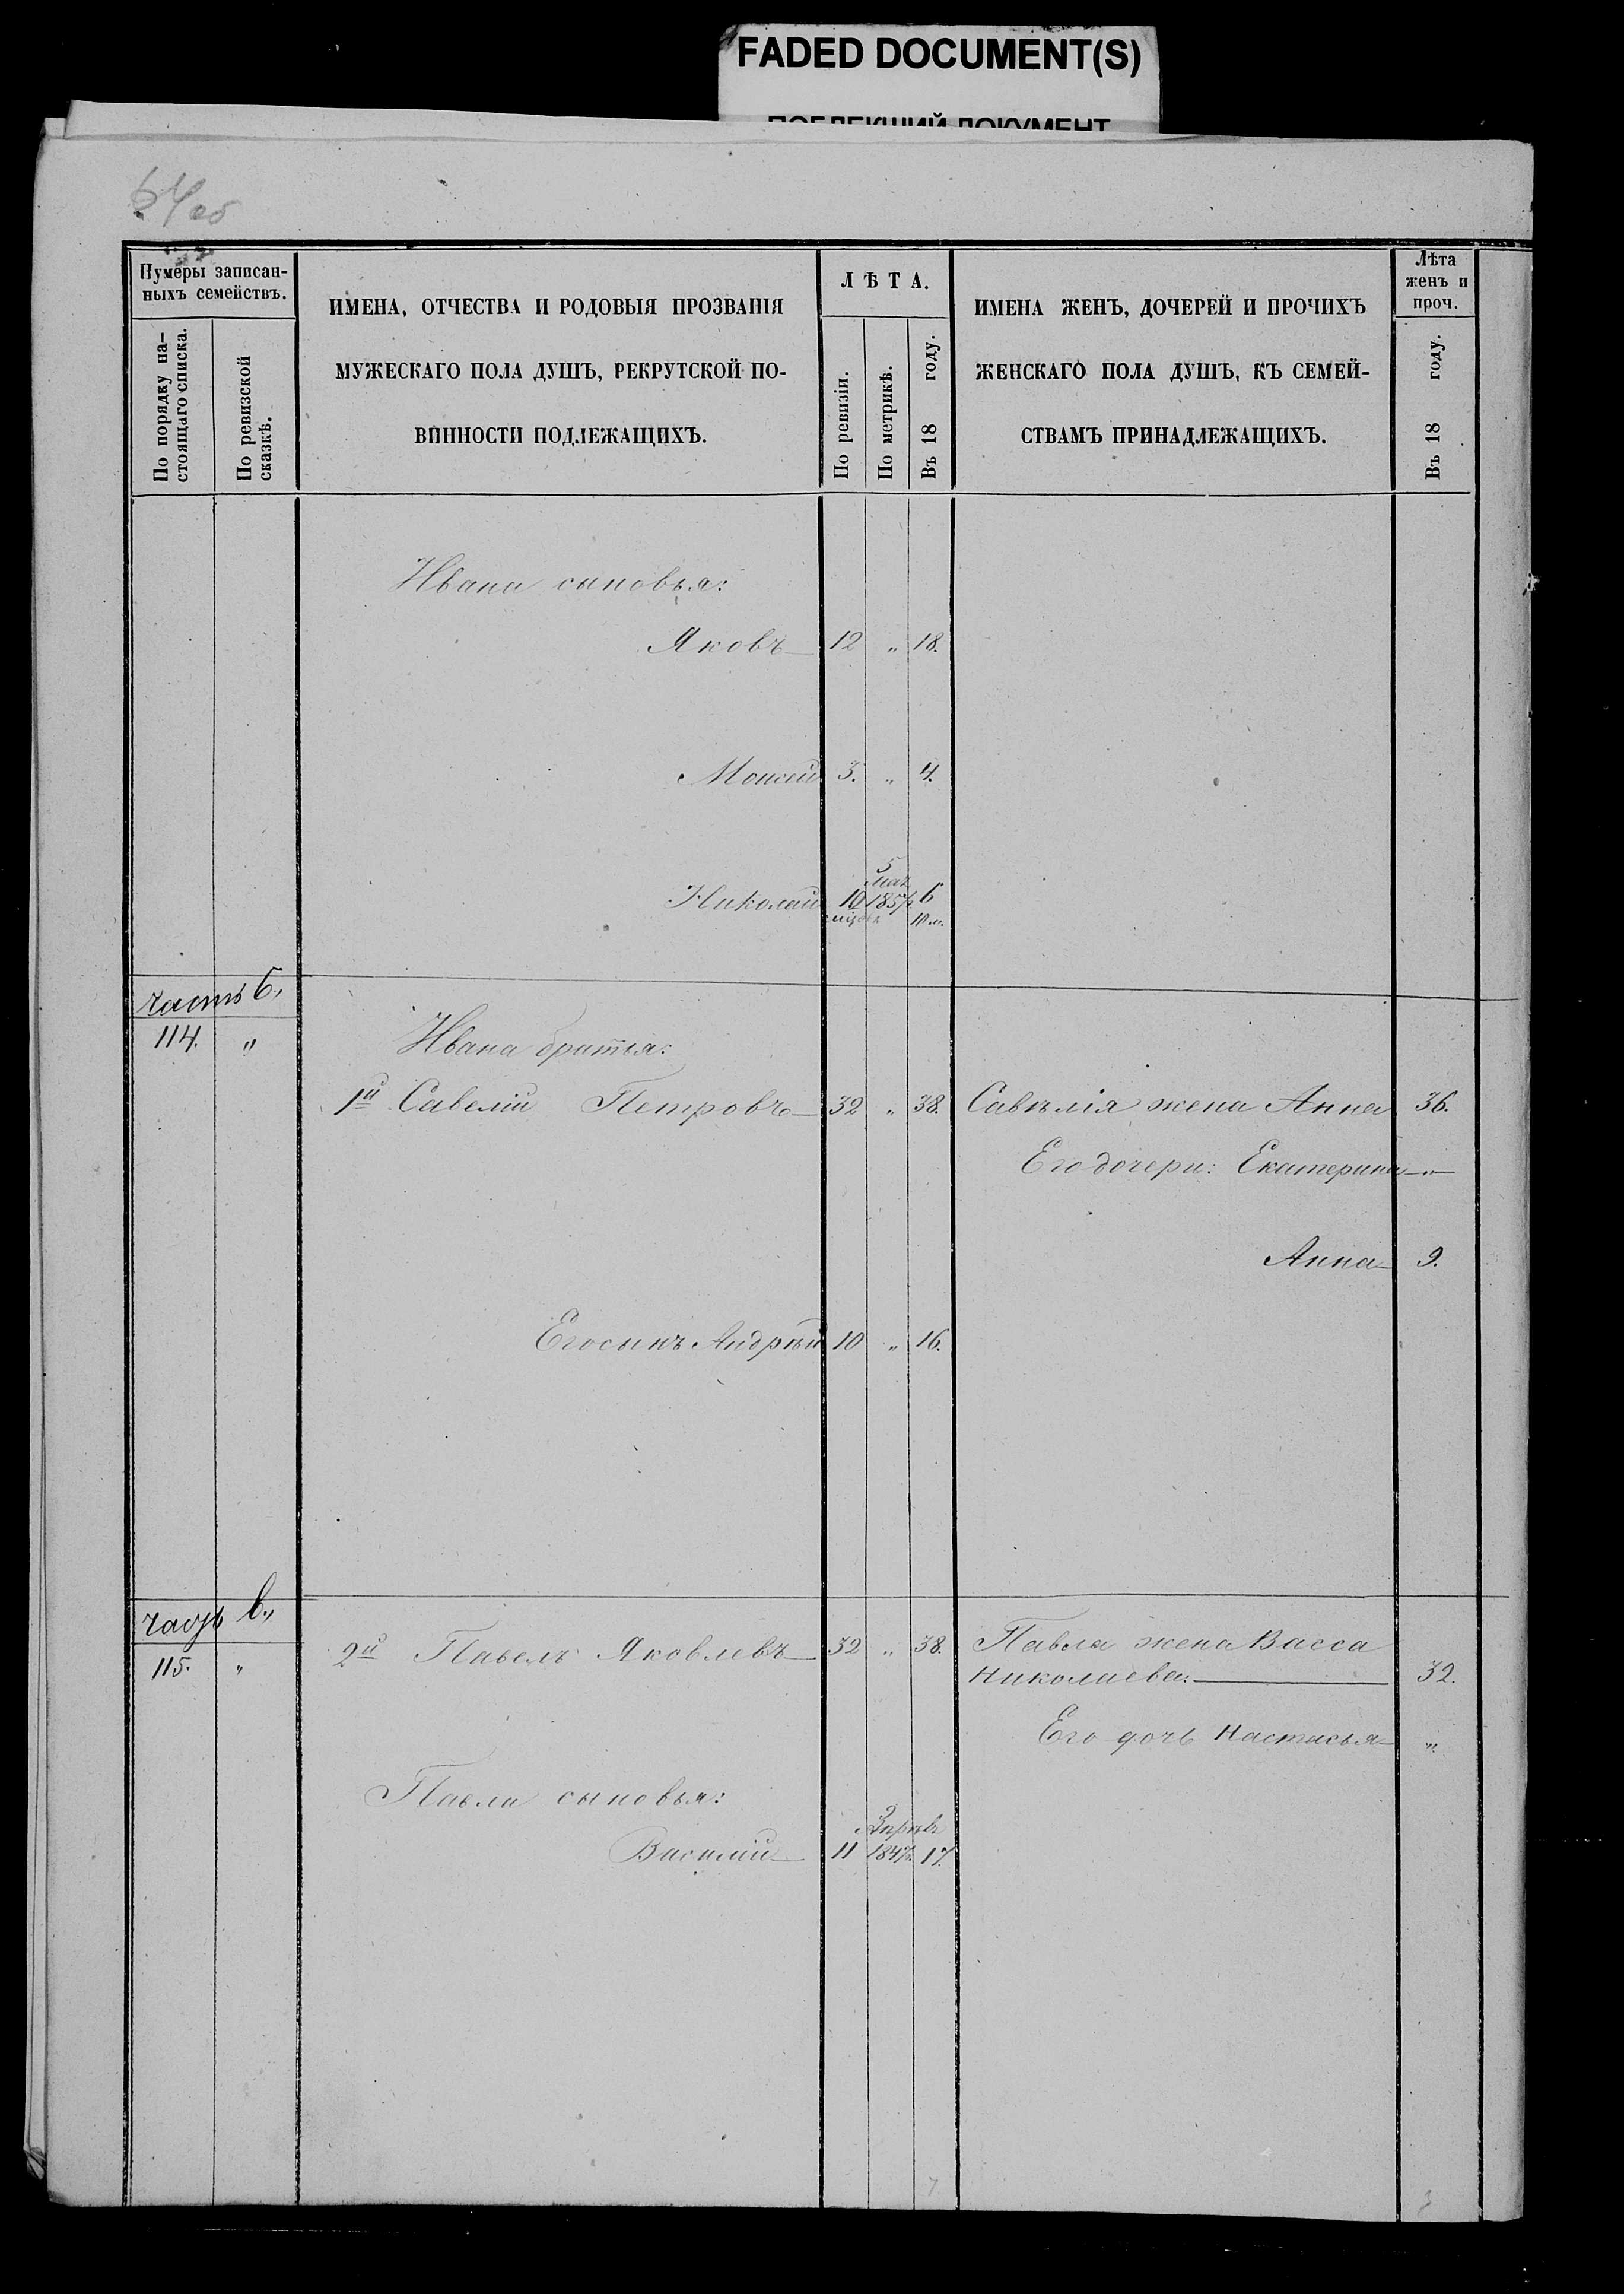 FADED DOCUMENT(S)
ПОБЛЕКШИЙ ДОКУМЕНТ
64об
Нумеры записан-
ныхъ семействъ.
По порядку на-
стоящаго списка.
По ревизской
сказкѣ.
ИМЕНА, ОТЧЕСТВА И РОДОВЫЯ ПРОЗВАНІЯ
МУЖЕСКАГО ПОЛА ДУШЪ, РЕКРУТСКОЙ ПО-
ВИННОСТИ ПОДЛЕЖАЩИХЪ.
ЛѢТА.
По ревизіи.
По метрикѣ.
Въ 18 году.
ИМЕНА ЖЕНЪ, ДОЧЕРЕЙ И ПРОЧИХЪ
ЖЕНСКАГО ПОЛА ДУШЪ, КЪ СЕМЕЙ-
СТВАМЪ ПРИНАДЛЕЖАЩИХЪ.
Лѣта
женъ и
проч.
Въ 18 году.
Ивана сыновья:
Яковъ 12 „ 18.
Моисей 3. „ 4.
5
Николай 10 1857 6
10 м.
часть б.,
114. „ Ивана братья:
1й Савелій Петровъ 32 „ 38. Савелія жена Анна 36.
Его дочери: Екатерина „
Анна 9.
Его сынъ Андрѣй 10 „ 16.
часть в.,
115. „ 2й Павелъ Яковлевъ 32 „ 38. Павла жена Васса
Николаева: 32.
Его дочь Настасья „
Павла сыновья:
Василій 11 1847 17.
7 3